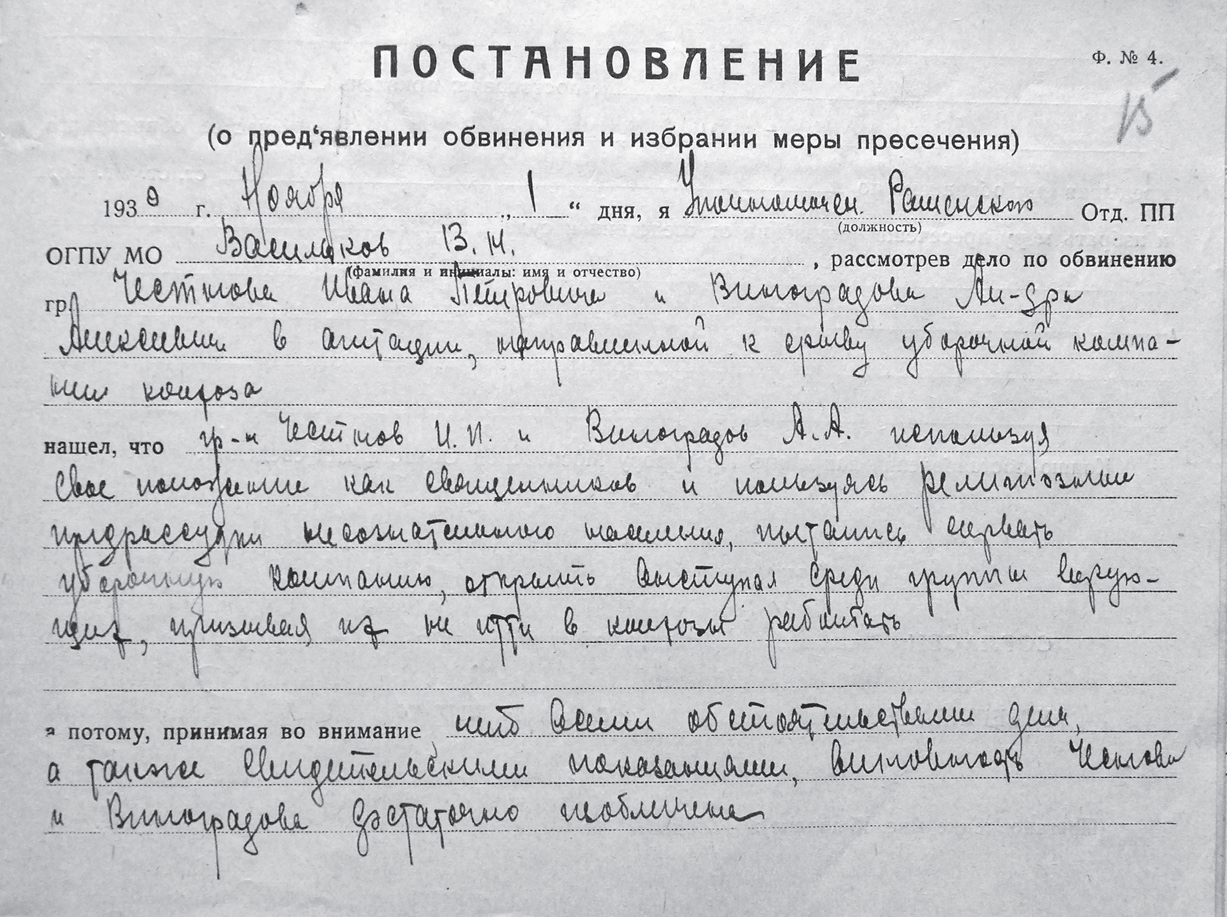 ПОСТАНОВЛЕНИЕ
Ф. № 4.
15
(о пред‘явлении обвинения и избрании меры пресечения)
193 г. Ноября „1“ дня, я Уполномочен. Отд. ПП
(должность)
ОГПУ МО В. И.
(фамилия и инициалы: имя и отчество)
, рассмотрев дело по обвинению
гр. Ивана Петровича и Виноградова
Алексеевича в агитации, направленной к срыву уборочной кампа-
нии колхоза
нашел, что гр-н И. П. и Виноградов А. А. используя
свое положение как священников и пользуясь религиозными
предрассудки несознательного населения, пытались сорвать
уборочную кампанию, открыто выступая среди группы верую-
щих, призывая их не итти в колхозы работать
а потому, принимая во внимание, что всеми обстоятельствами дела,
а также свидетельскими показаниями, виновность
и Виноградова достаточно